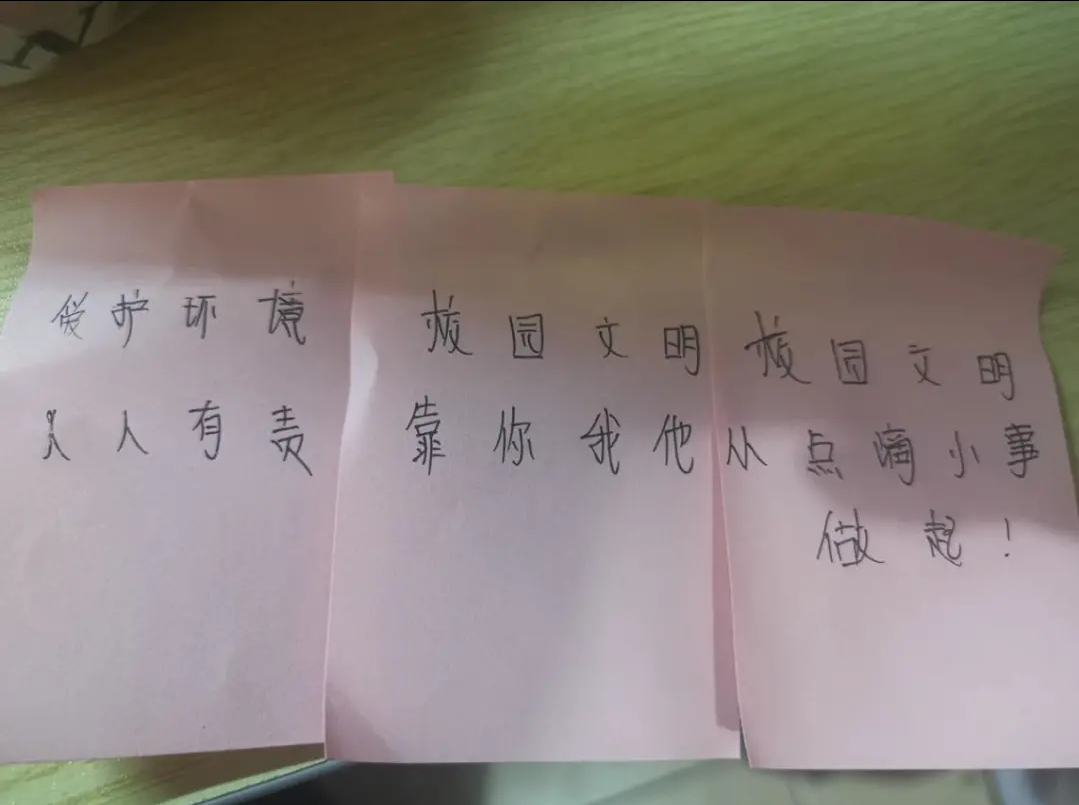 爱护环境
人人有责
校园文明
靠你我他
校园文明
从点滴小事
做起！